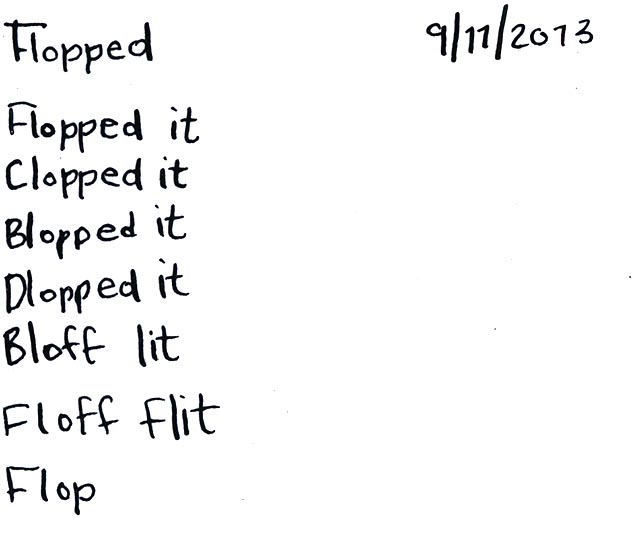 Flopped 9/11/2013
Flopped it
Clopped it
Blopped it
Dlopped it
Bloff lit
Floff flit
Flop